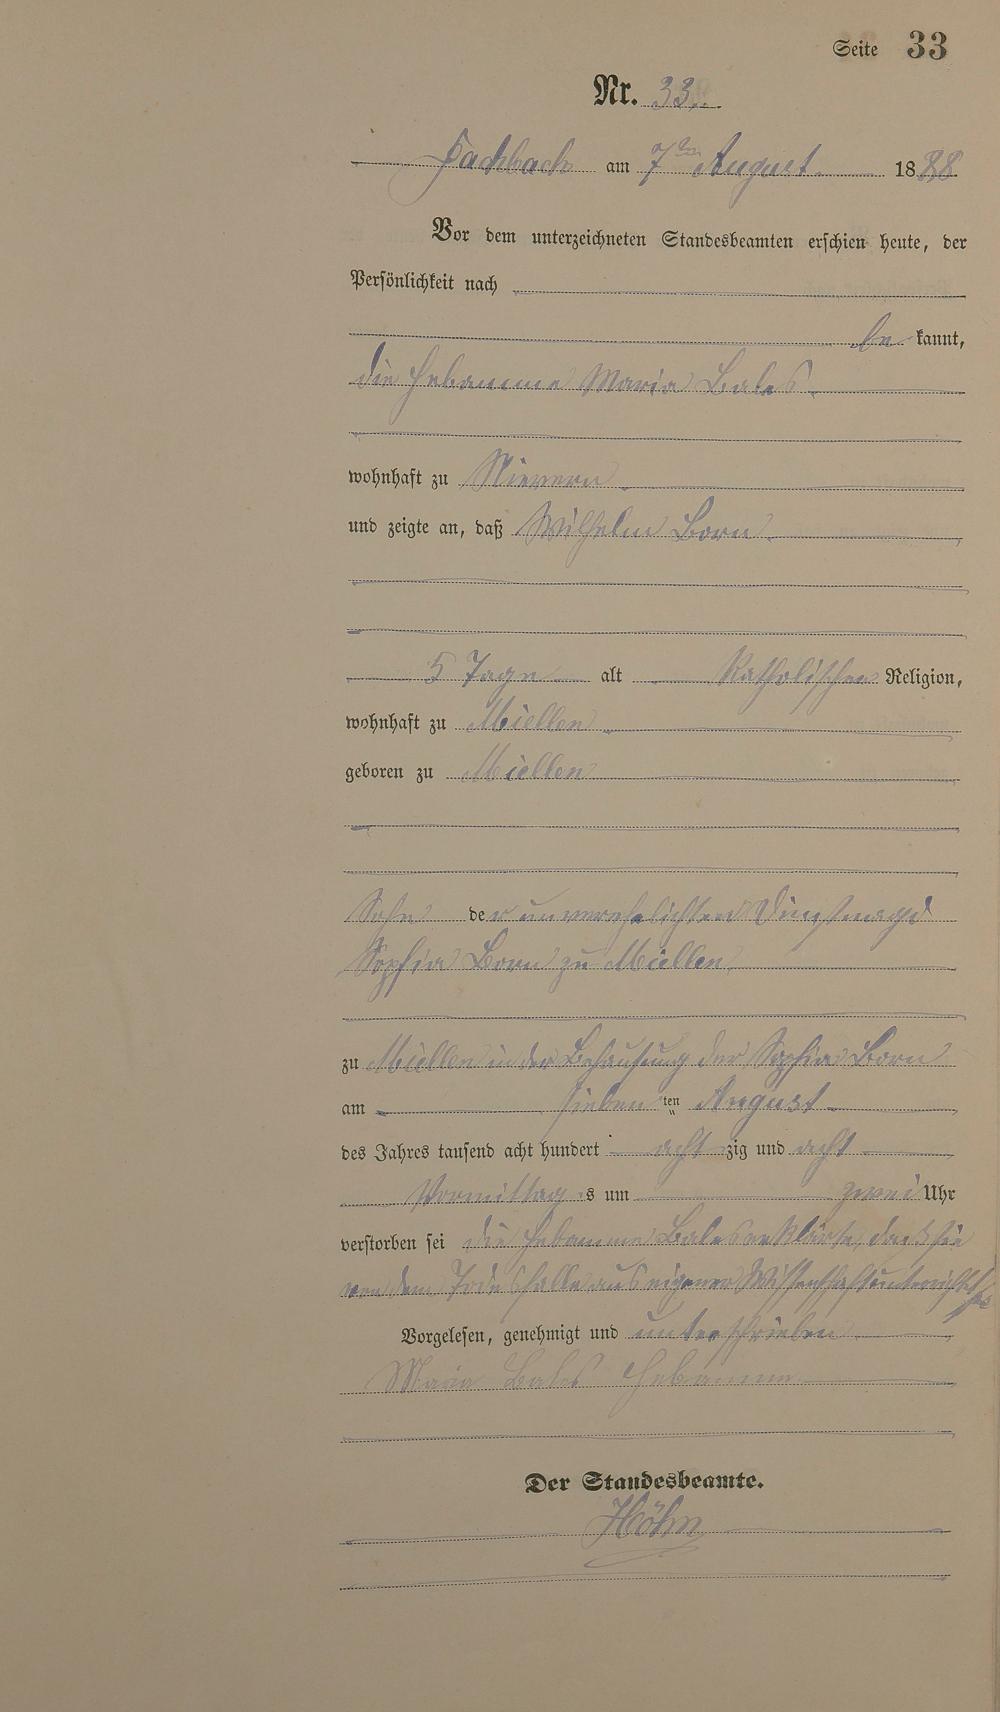 Seite 33
Nr. 33.
Fachbach am 7ten August 1888.
Vor dem unterzeichneten Standesbeamten erschien heute, der
Persönlichkeit nach
be kannt,
die Hebamme Maria Bales
wohnhaft zu Nievern
und zeigte an, daß Wilhelm Born
5 Tage alt Katholischer Religion,
wohnhaft zu Miellen
geboren zu Miellen
Sohn der unverehelichten Dienstmagd
Sophia Born zu Miellen
zu Miellen in der Behausung der Sophia Born
am sieben ten August
des Jahres tausend acht hundert acht zig und acht
Vormittag s um zwei Uhr
verstorben sei die Hebamme Bales erklärte, daß sie
von dem Todesfalle aus eigener Wissenschaft unterrichtet sei
Vorgelesen, genehmigt und unterschrieben
Maria Bales Hebamme
Der Standesbeamte.
Höhn